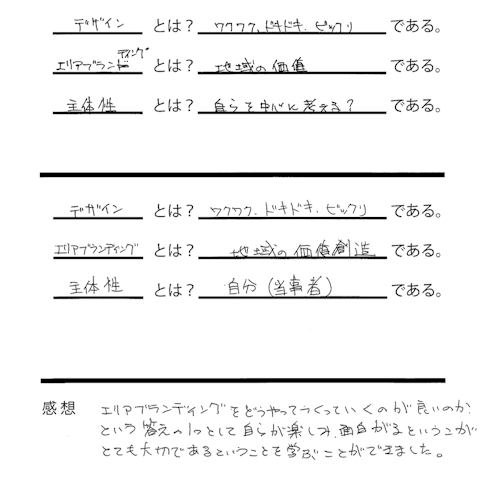 デザイン とは? ワクワク、ドキドキ、ビックリ である。
エリアブランディング とは? 地域の価値 である。
主体性 とは? 自らを中心に考える? である。
デザイン とは? ワクワク、ドキドキ、ビックリ である。
エリアブランディング とは? 地域の価値創造 である。
主体性 とは? 自分(当事者) である。
感想 エリアブランディングをどうやってつくっていくのが良いのか
という答えの1つとして自らが楽しみ、面白がるということが
とても大切であるということを学ぶことができました。